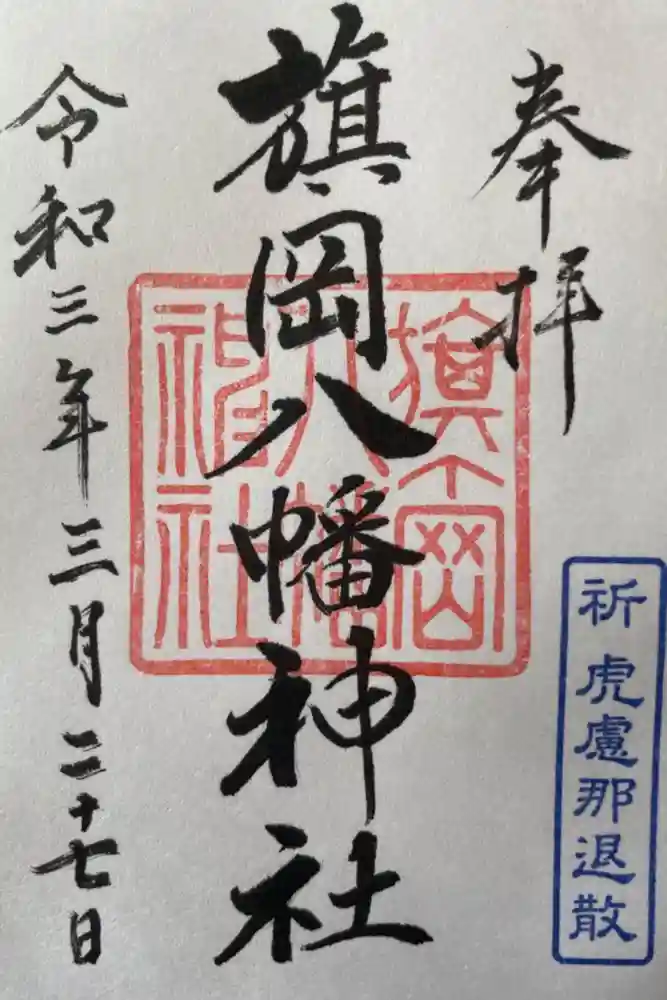 奉拝
旗岡八幡神社
令和三年三月二十七日
旗岡八幡神社
祈 虎慮那退散